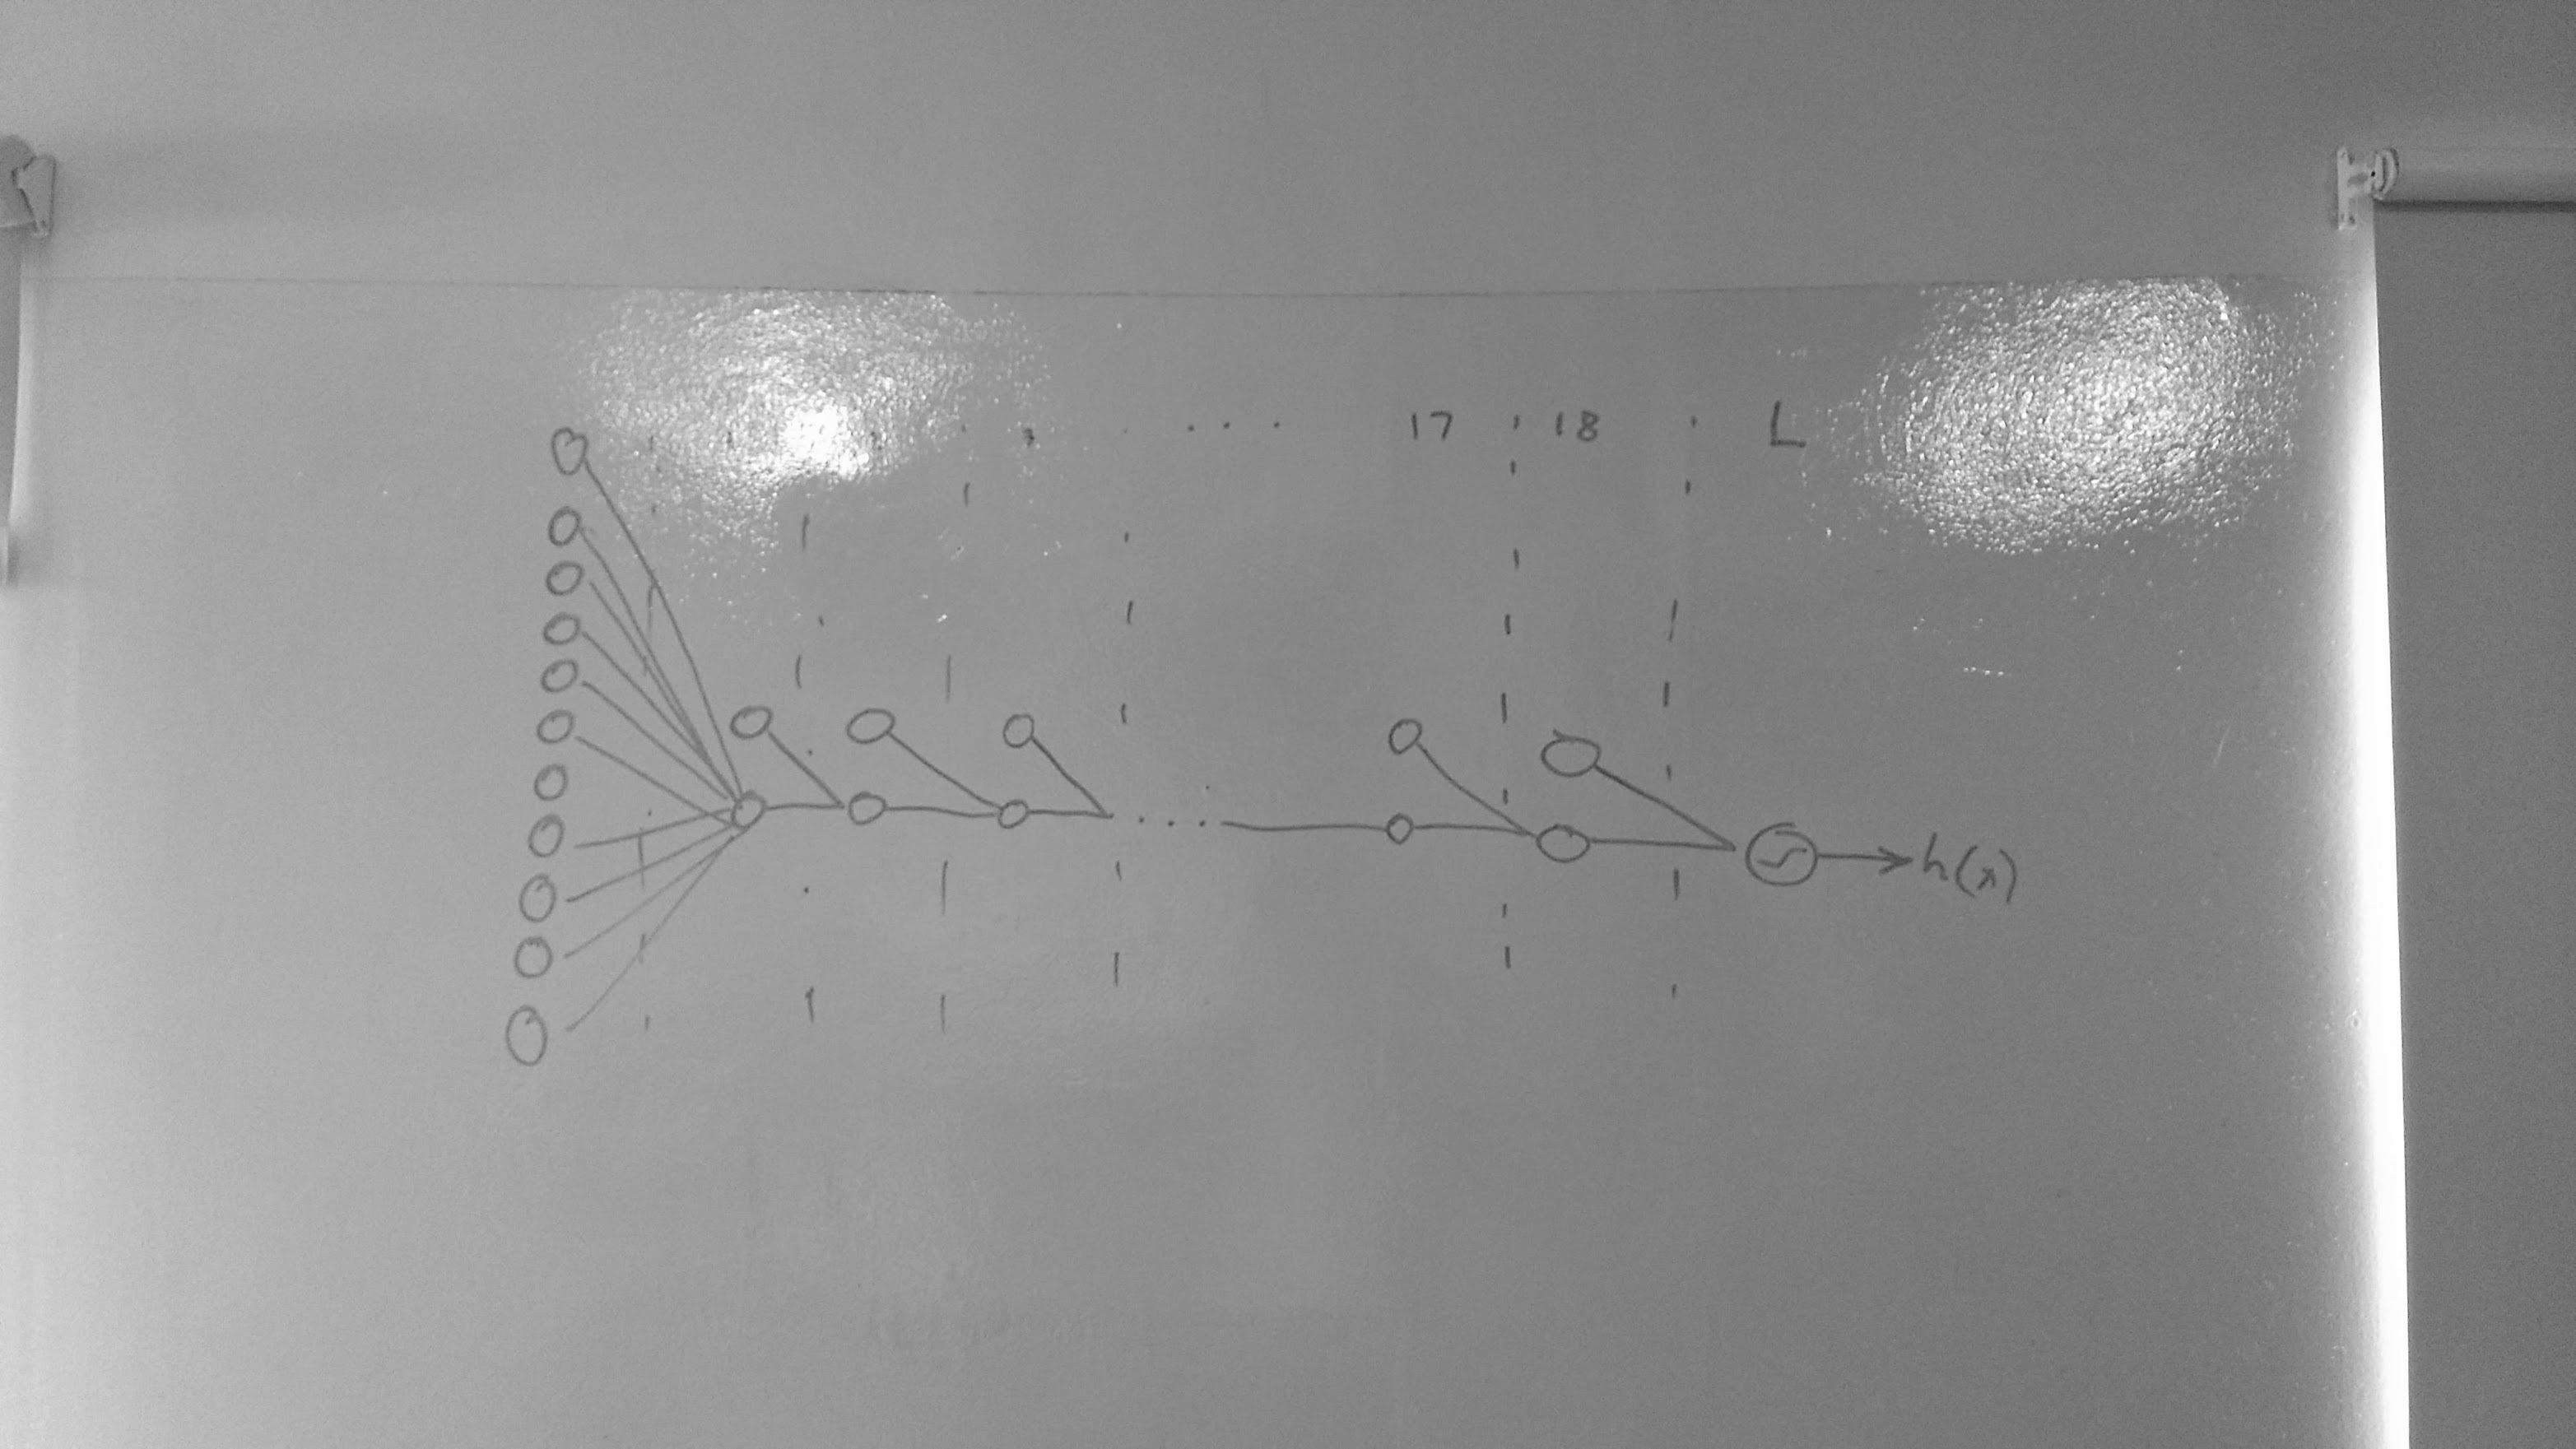 3 .... 17 18 L
h(x)